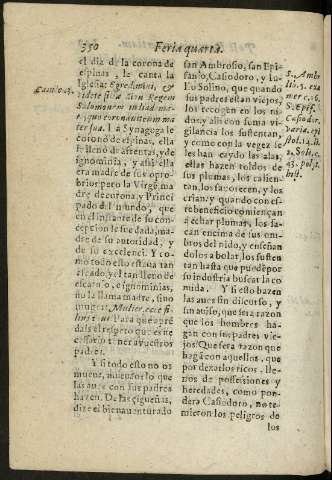 350 Feria quarta.
el dia de la corona de
espinas, le canta la
Iglesia: Egredimini, &
videte filiæ Sion Regem
Salomonem in diademate,
quo coronauit eum ma
ter sua. La Synagoga le
coronò de espinas, ella
le llenò de afrentas, y de
ignominia, y assi ella
era madre de sus opro-
brios; pero la Virgẽ ma
dre de corona, y Princi
pado del mundo, que
en el instante de su con
cepcion le fue dada, ma
dre de su autoridad, y
de su excelencia. Y co-
mo todo esto estaua tan
y el tan lleno de
escarnio, e ignominias,
no la llama madre, sino
muger: Mulier, ecce fi-
lius tuus. Para que aprẽ
dais el respeto que es ne
cessario tener a vuestros
padres.
Y si todo esto no os
mueue, mueuaos lo que
las aues con sus padres
hazen. De las cigueñas,
dize el bienauenturado
Cantic. 3.
san Ambrosio, san Epi-
fanio, Casiodoro, y Iu-
lio Solino, que quando
sus padres estan viejos,
los tienen en los ni-
dos, y alli con suma vi-
gilancia los sustentan,
y como con la vegez se
les han caydo las alas,
ellas hazen toldos de
sus plumas, los calien-
tan, los fauorecen, y los
crian, y quando con es-
te beneficio comiençan
a echar plumas, los sa-
can encima de sus om-
bros del nido, y enseñan
dolos a bolar, los susten
tan hasta que puedẽ por
su industria buscar la co
mida. Y si esto hazen
las aues sin discurso, y
sin auiso, que sera razon
que los hombres ha-
gan con sus padres vie-
jos? Que sera razon que
hagã con aquellos, que
por dexarlos ricos, lle-
nos de possessiones y
heredades, como pon-
dera Casiodoro, no te-
mieron los peligros de
los
S. Ambr.
lib. 5. exa
mer. c. 16.
S. Epif.
Casiodor.
varia. epi
stol. 14. li.
2. Soli. c.
43. polyt.
hist.